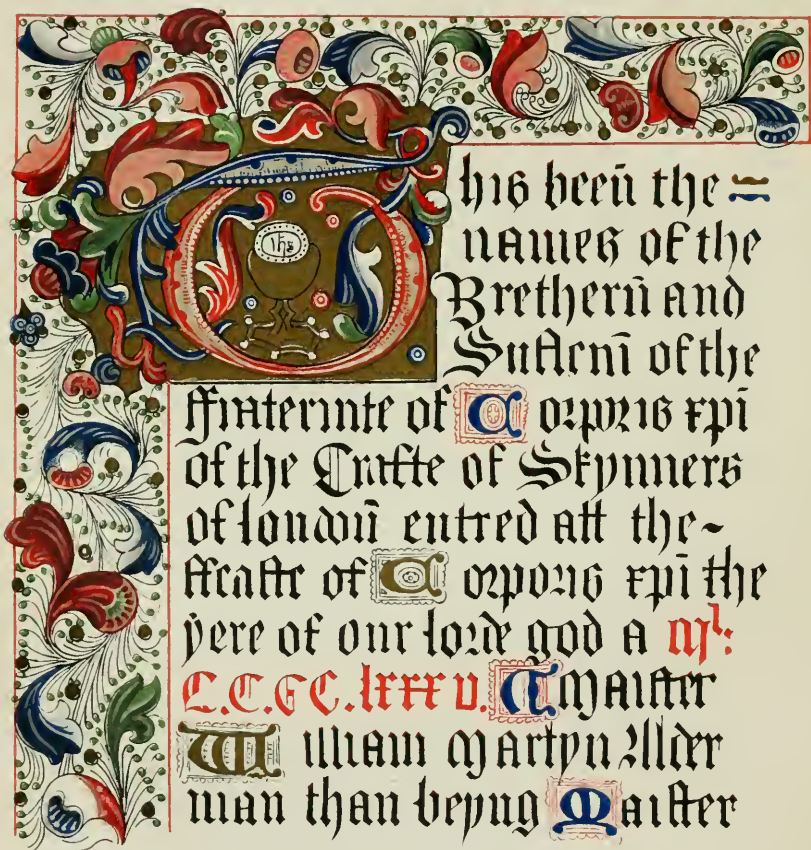 This beeñ the =
names of the
Bretherñ and
Susterñ of the
ffraternite of Corporis xp̄i
of the Crafte of Skynners
of londoñ entred att the~
ffeaste of Corporis xp̄i the
yere of our lorde god a Mˡ:
C.C.C.C.lxxx v. Maister
William Martyn Alder
man than beyng Maister
ihs